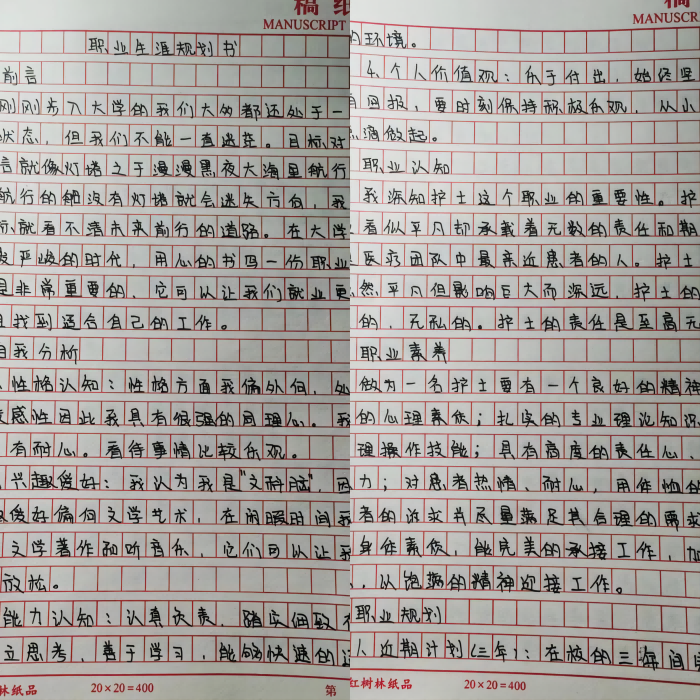 稿纸
MANUSCRIPT
职业生涯规划书
前言
刚刚步入大学的我们大多都还处于一
状态，但我们不能一直迷茫。目标对
言就像灯塔之于漫漫黑夜大海里航行
航行的船没有灯塔就会迷失方向，我
标就看不清未来前行的道路。在大学
严峻的时代，用心的书写一份职业
是非常重要的，它可以让我们就业更
且找到适合自己的工作。
自我分析
性格认知：性格方面我偏外向，处
感性因此我具有很强的同理心。我
有耐心。看待事情比较乐观。
兴趣爱好：我认为我是"文科脑"，因
爱好偏向文学艺术，在闲暇时间我
文学著作和听音乐，它们可以让我
放松。
能力认知：认真负责，踏实细致
立思考，善于学习，能够快速的适
林纸品
20×20=400
第
稿
MANUSCR
的环境。
4.个人价值观：乐于付出，始终坚
有回报，要时刻保持积极乐观，从小
点滴做起。
职业认知
我深知护士这个职业的重要性。护
看似平凡却承载着无数的责任和期
医疗团队中最亲近患者的人。护士
然平凡但影响巨大而深远，护士的
的，无私的。护士的责任是至高无
职业素养
做为一名护士要有一个良好的精神
的心理素质；扎实的专业理论知识
理操作技能；具有高度的责任心、
力；对患者热情、耐心，用体恤的
者的诉求并尽量满足其合理的需求
身体素质，能完美的承接工作，加
，以饱满的精神迎接工作。
职业规划
人近期计划（三年）：在校的三年间
红树林纸品
20×20=400